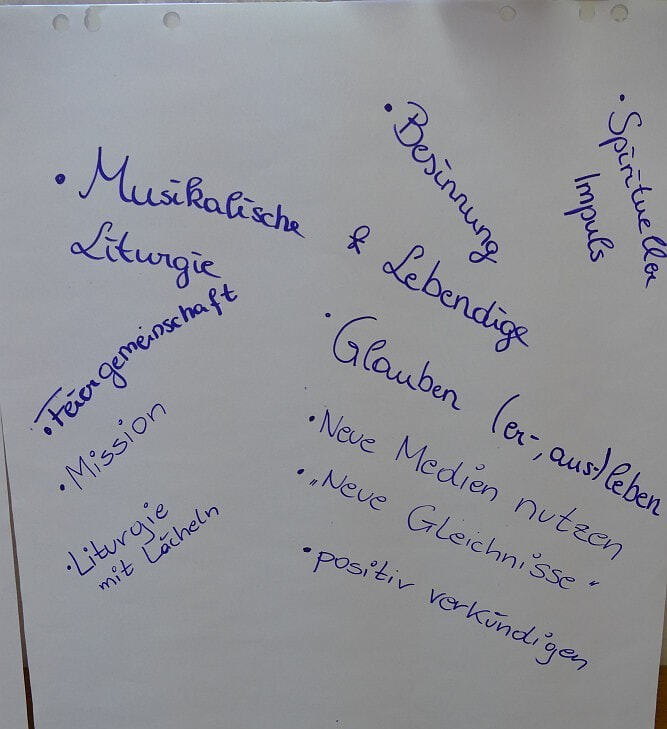 • Musikalische
& Lebendige
Liturgie
• Besinnung
• Spiritueller
Impuls
• Feiergemeinschaft
• Mission
• Liturgie
mit Lächeln
• Glauben (er-, aus-) leben
• Neue Medien nutzen
• „Neue Gleichnisse“
• positiv verkündigen